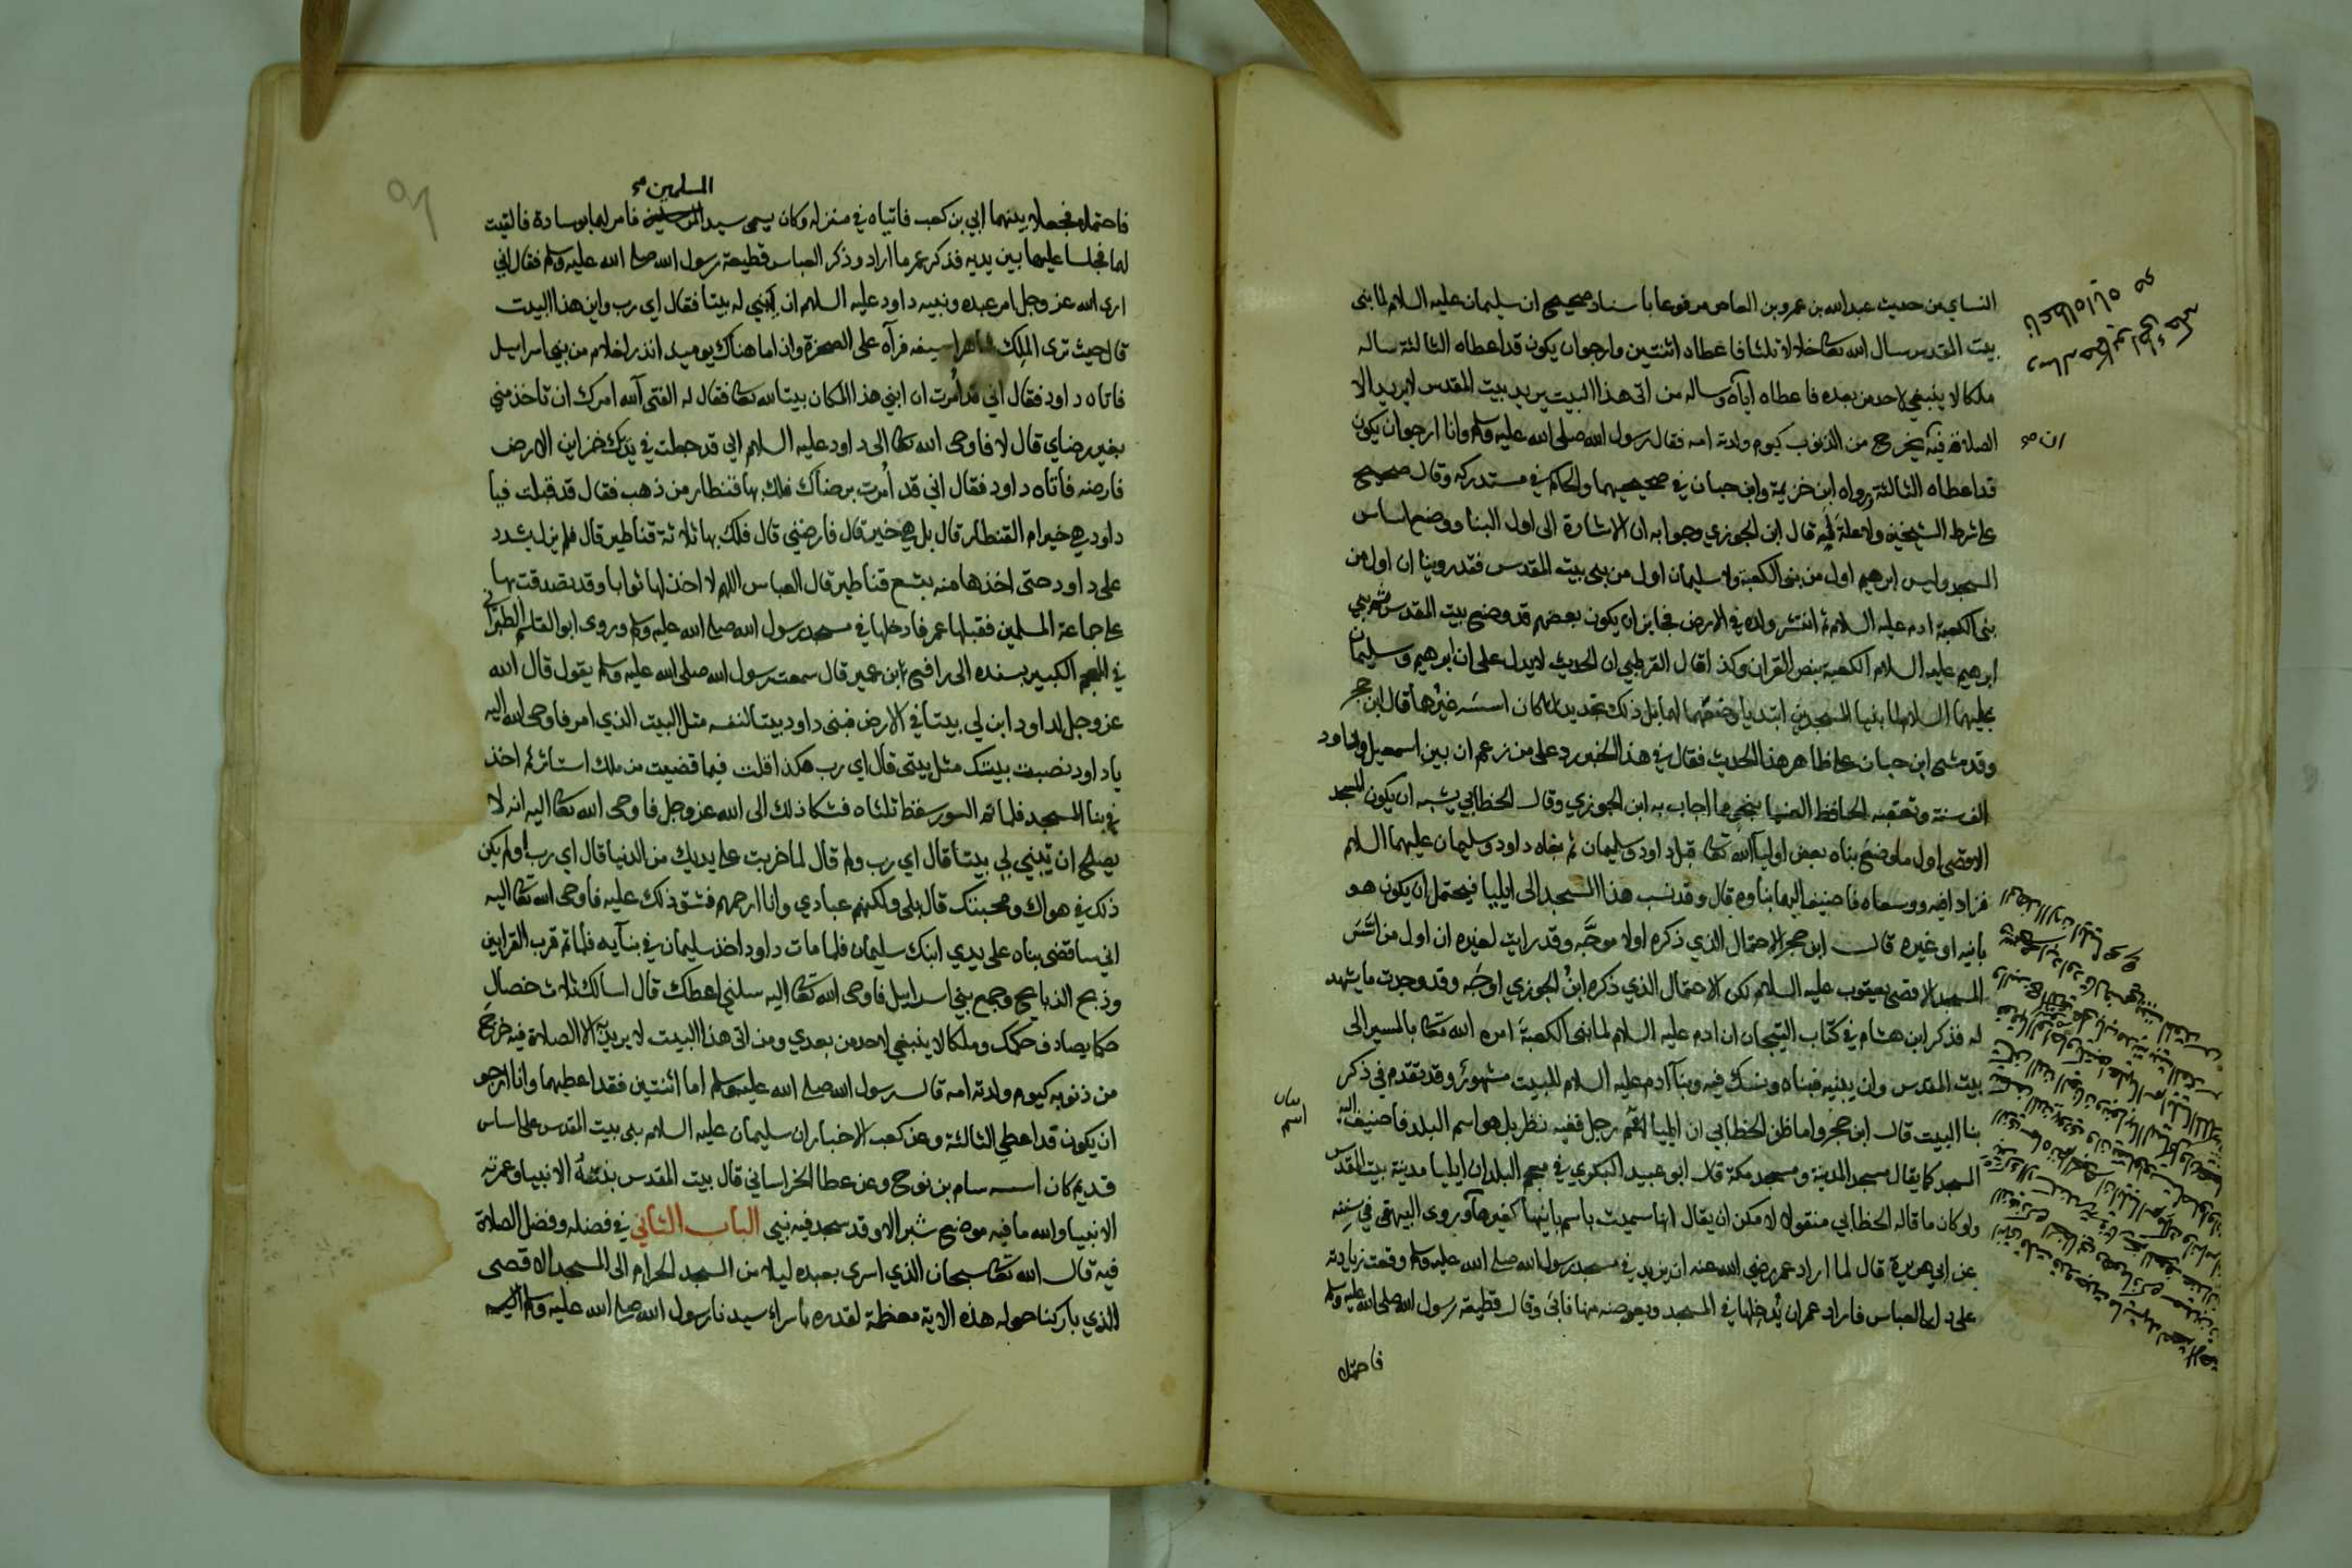 النساي من حديث عبد الله بن عمرو بن العاص مرفوعا باسناد صحيح ان سليمان عليه السلام لما بنى
بيت المقدس سال الله تعا خلالا ثلثا فاعطاه اثنتين وارجوا ان يكون قد اعطاه الثالثة ساله
ملكا لا ينبغي لاحد من بعده فاعطاه اياه وساله من اتى هذا البيت يريد بيت المقدس لا يريد الا
الصلاة فيه يخرج من الذنوب كيوم ولدته امه فقال رسول الله صلى الله عليه وسلم وانا ارجوا ان يكون
ان صح
قد اعطاه الثالثة ورواه ابن خزيمة وابن حبان في صحيحيهما والحاكم في مستدركه وقال صحيح
على شرط الشيخين ولا علة له قال ابن الجوزي وجوابه ان الاشارة الى اول البنا ووضع اساس
المسجد وليس ابرهيم اول من بنى الكعبة ولا سليمان اول من بنى بيت المقدس فقد روينا ان اول من
بنى الكعبة ادم عليه السلام ثم انتشر ولده في الارض فجايز ان يكون بعضهم قد وضع بيت المقدس ثم بنى
ابرهيم عليه السلام الكعبة بنص القران وكذا قال القرطبي ان الحديث لا يدل على ان ابرهيم وسليمان
عليهما السلام لما بنيا المسجدين ابتديا وضعهما لهما بل ذلك تجديد لما كان اسسه غيرهما قال ابن حجر
وقد مشى ابن حبان على ظاهر هذا الحديث فقال في هذا الخبر رد على من زعم ان بين اسمعيل وداود
الف سنة وتعقبه الحافظ الضيا بنحو ما اجاب به ابن الجوزي وقال الخطابي يشبه ان يكون المسجد
الاقصى اول ما وضع بناه بعض اوليا الله تعا قبل داود وسليمان ثم بناه داود وسليمان عليهما السلام
فزادا فيه ووسعاه فاضيف اليهما بناوه قال وقد نسب هذا المسجد الى ايليا فيحتمل ان يكون هو
بانيه او غيره قال ابن حجر الاحتمال الذي ذكره اولا موجه وقد رايت لغيره ان اول من اسس
المسجد الاقصى يعقوب عليه السلام لكن الاحتمال الذي ذكره ابن الجوزي اوجه وقد وجدت ما يشهد
له فذكر ابن هشام في كتاب التيجان ان ادم عليه السلام لما بنى الكعبة امره الله تعا بالمسير الى
بيت المقدس وان يبنيه فبناه ونسك فيه وبنا آدم عليه السلام للبيت مشهور وقد تقدم في ذكر
بنا البيت قال ابن حجر واما ظن الخطابي ان ايليا اسم رجل ففيه نظر بل هو اسم البلد فاضيف اليه
المسجد كما يقال مسجد المدينة ومسجد مكة قال ابو عبيد البكري في معجم البلدان ايليا مدينة بيت المقدس
ولو كان ما قاله الخطابي منقولا لامكن ان يقال انها سميت باسم بانيها كغيرها وروى البيهقي في سننه
عن ابي هريرة قال لما اراد عمر رضي الله عنه ان يزيد في مسجد رسول الله صلى الله عليه وسلم وقعت زيادته
على دار العباس فاراد عمر ان يدخلها في المسجد ويعوضه منها فابى وقال قطيعة رسول الله صلى الله عليه وسلم
فاختلفا
المسلمين صح
فاختلفا فجعلا بينهما ابي بن كعب فاتياه في منزله وكان يسمى سيد المرسلين فامر لهما بوسادة فالقيت
لهما فجلسا عليها بين يديه فذكر عمر ما اراد وذكر العباس قطيعة رسول الله صلى الله عليه وسلم فقال ابي
ان الله عز وجل امر عبده ونبيه داود عليه السلام ان يبني له بيتا فقال اي رب واين هذا البيت
قال حيث ترى الملك شاهرا سيفه فرآه على الصخرة واذا ما هناك يوميد اندر لغلام من بني اسرايل
فاتاه داود فقال اني قد امرت ان ابني هذا المكان بيتا لله تعا فقال له الفتى آلله امرك ان تاخذ مني
بغير رضاي قال لا فاوحى الله تعا الى داود عليه السلام اني قد جعلت في يدك خزاين الارض
فارضه فأتاه داود فقال اني قد أمرت برضاك فلك بها قنطار من ذهب فقال قد قبلت فيا
داود هي خير ام القنطار قال بل هي خير قال فارضني قال فلك بها ثلاثة قناطير قال فلم يزل يشدد
على داود حتى اخذها منه بتسع قناطير قال العباس اللهم لا اخذ لها ثوابا وقد تصدقت بها
على جماعة المسلمين فقبلها عمر فادخلها في مسجد رسول الله صلى الله عليه وسلم وروى ابو القاسم الطبراني
في المعجم الكبير بسنده الى رافع بن عمير قال سمعت رسول الله صلى الله عليه وسلم يقول قال الله
عز وجل لداود ابن لي بيتا في الارض فبنى داود بيتا لنفسه قبل البيت الذي امر فاوحى الله اليه
ياداود نصبت بيتك قبل بيتي قال اي رب هكذا قلت فيما قضيت من ملك استاثر ثم اخذ
في بنا المسجد فلما تم السور سقط ثلثاه فشكا ذلك الى الله عز وجل فاوحى الله تعا اليه انه لا
يصلح ان تبني لي بيتا قال اي رب ولم قال لما جرت على يديك من الدما قال اي رب اولم يكن
ذلك في هواك ومحبتك قال بلى ولكنهم عبادي وانا ارحمهم فشق ذلك عليه فاوحى الله تعا اليه
اني ساقضي بناه على يدي ابنك سليمان فلما مات داود اخذ سليمان في بنآيه فلما تم قرب القرابين
وذبح الذبايح وجمع بني اسرايل فاوحى الله تعا اليه سلني اعطك قال اسالك ثلاث خصال
حكما يصادف حكمك وملكا لا ينبغي لاحد من بعدي ومن اتى هذا البيت لا يريد الا الصلاة فيه خرج
من ذنوبه كيوم ولدته امه قال رسول الله صلى الله عليه وسلم اما اثنتين فقد اعطيهما وانا ارجو
ان يكون قد اعطي الثالثة وعن كعب الاخبار ان سليمان عليه السلام بنى بيت المقدس على اساس
قديم كان اسسه سام بن نوح وعن عطا الخراساني قال بيت المقدس بنته الانبيا وعمرته
الانبيا والله ما فيه موضع شبر الا وقد سجد فيه نبي الباب الثاني في فضله وفضل الصلاة
فيه قال الله تعا سبحان الذي اسرى بعبده ليلا من المسجد الحرام الى المسجد الاقصى
الذي باركنا حوله هذه الاية معظمة لقدره باسراء سيدنا رسول الله صلى الله عليه وسلم اليه